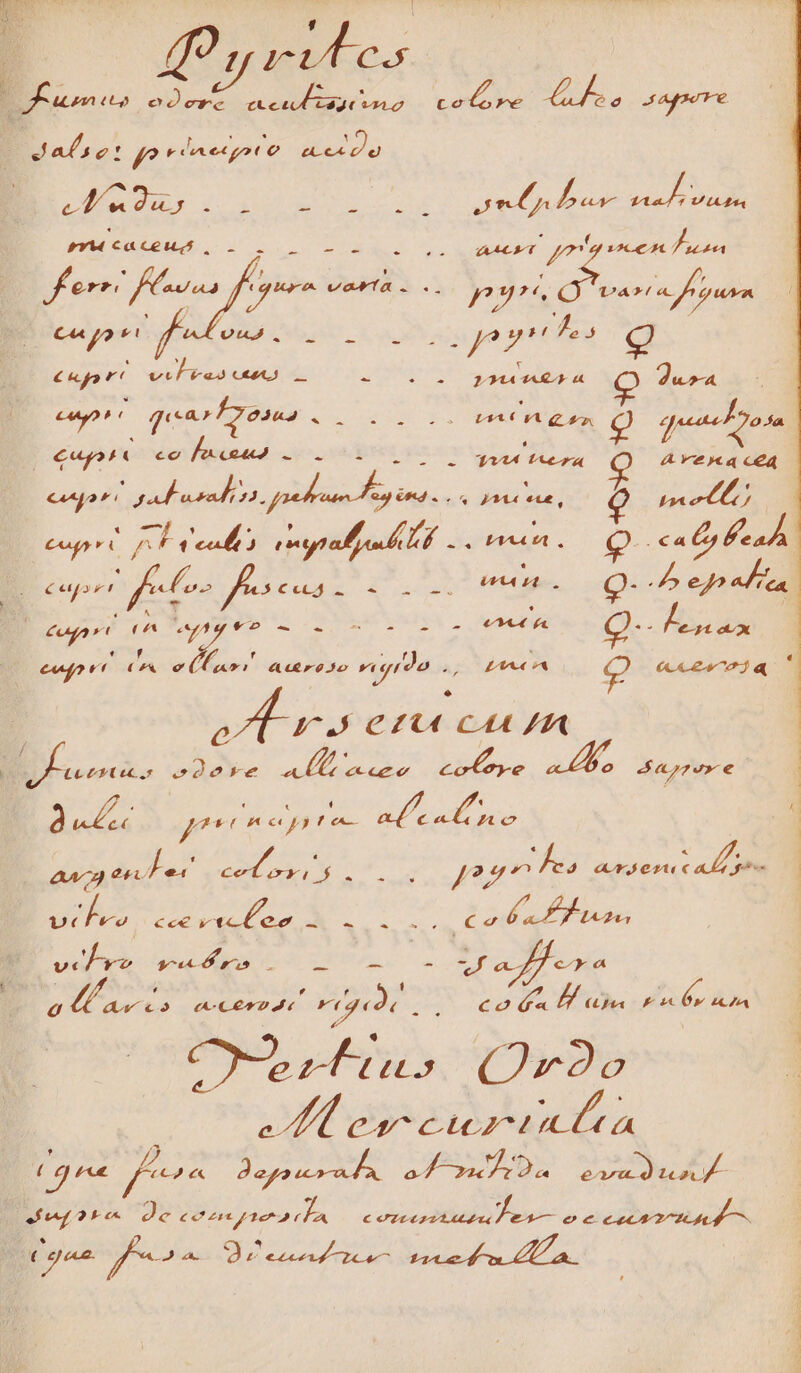 Pyrites
fumus odore acutissimo colore luteo sapore
salso: principio acido
Nudus . . - - - . . sulphur nativum
micaceus . - - - - - . . auri pigmentum
ferri flavus figura varia - .. pyri, ♂ varia figura
cupri fulvus . - - - - . pyrites ♀
cupri vitrescens - - . . minera ♀ dura
cupri quartzosus . . . . .. minera ♀ quartzosa
cupri cotaceus - - - - . - minera ♀ arenacea
cupri saturatiss. petram tegens . . , mine, ♀ mollis
cupri impalpabilib - . min . ♀ calybeata
cupri fulvo fuscus - - - -. min . ♀ - . hepatica
cupri in apyro - - - - - - min ♀ - . tenax
cupri in ollari aceroso rigido . , min ♀ acerosa
Arsenicum
fumus odore alliaceo colore albo sapore
dulci principia alcalino
argentei coloris . . . pyrites arsenicalis - -
vitro cæruleo - - . . . cobaltum
vitro rubro . - - - Saffera
ollaris acerosi rigidi . . cobaltum rubrum
Tertius Ordo
Mercurialia
igne fusa depurata et nitida evadunt
supra decomposita communiter occurrunt
igne fusa dicuntur metalla